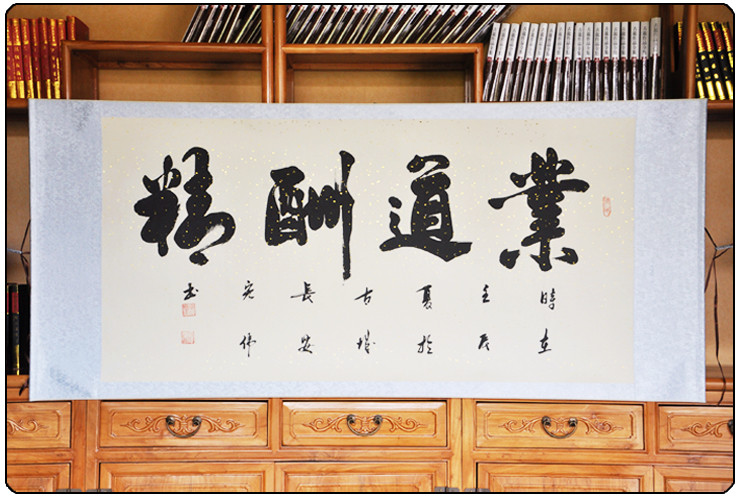 業道酬精
時在
壬辰
夏於
古城
長安
偉
書